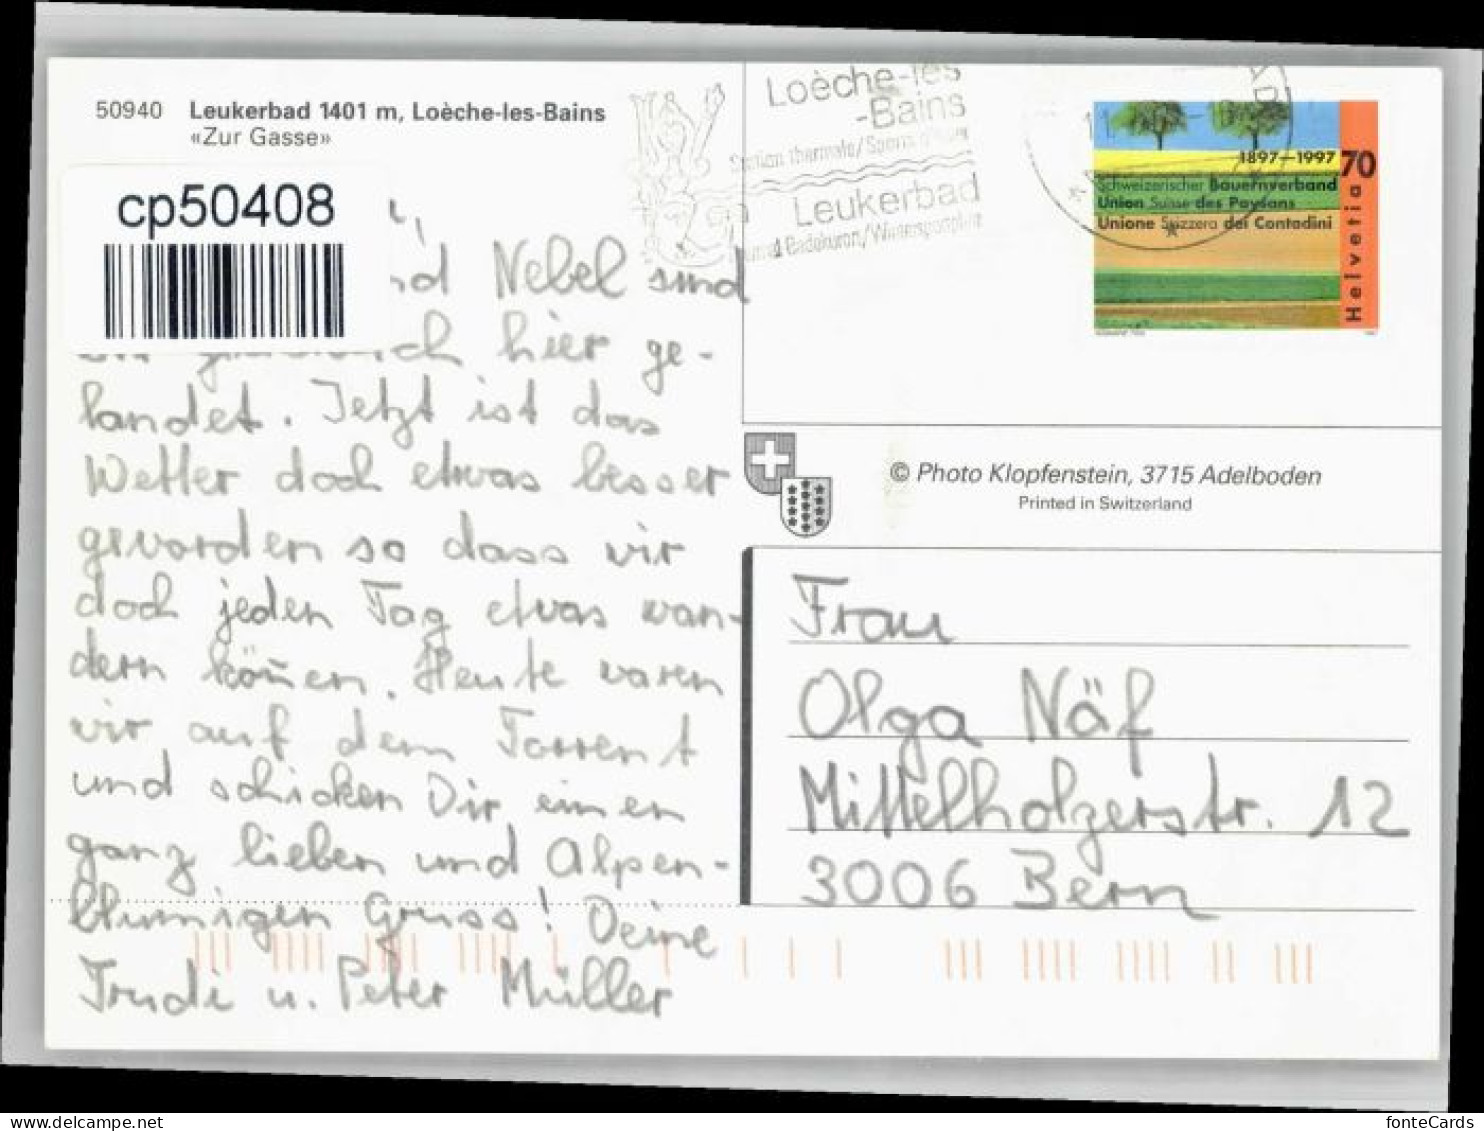 50940 Leukerbad 1401 m, Loèche-les-Bains
«Zur Gasse»
cp50408
Nebel sind
hier ge-
landet. Jetzt ist das
Wetter doch etwas besser
geworden so dass wir
doch jeden Tag etwas wan-
dern können. Heute waren
wir auf dem Torrent
und schicken Dir einen
ganz lieben und Alpen-
blumigen Gruss! Deine
Trudi u. Peter Müller
Loèche-les
-Bains
Station thermale/Sports d'hiver
Leukerbad
Badekuren/Wintersportplatz
1897–1997 70
Schweizerischer Bauernverband
Union Suisse des Paysans
Unione Svizzera dei Contadini
Helvetia
© Photo Klopfenstein, 3715 Adelboden
Printed in Switzerland
Frau
Olga Näf
Mittelholzerstr. 12
3006 Bern
delcampe.net
fonteCards